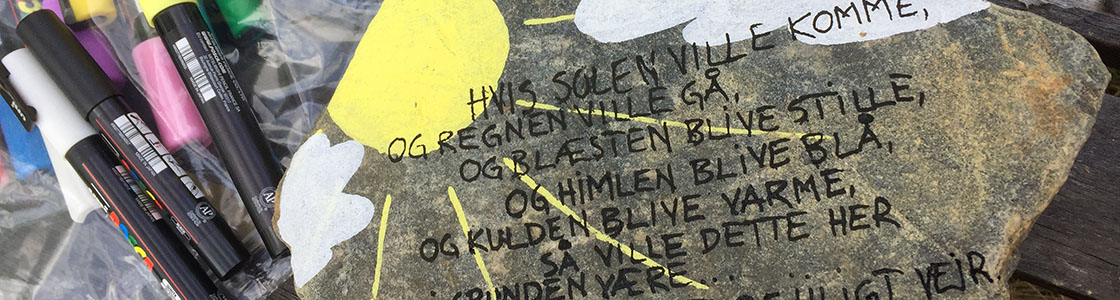 HVIS SOLEN VILLE KOMME,
OG REGNEN VILLE GÅ,
OG BLÆSTEN BLIVE STILLE,
OG HIMLEN BLIVE BLÅ,
OG KULDEN BLIVE VARME,
SÅ VILLE DETTE HER
GRUNDEN VÆRE...
VEJR.
AP
AP